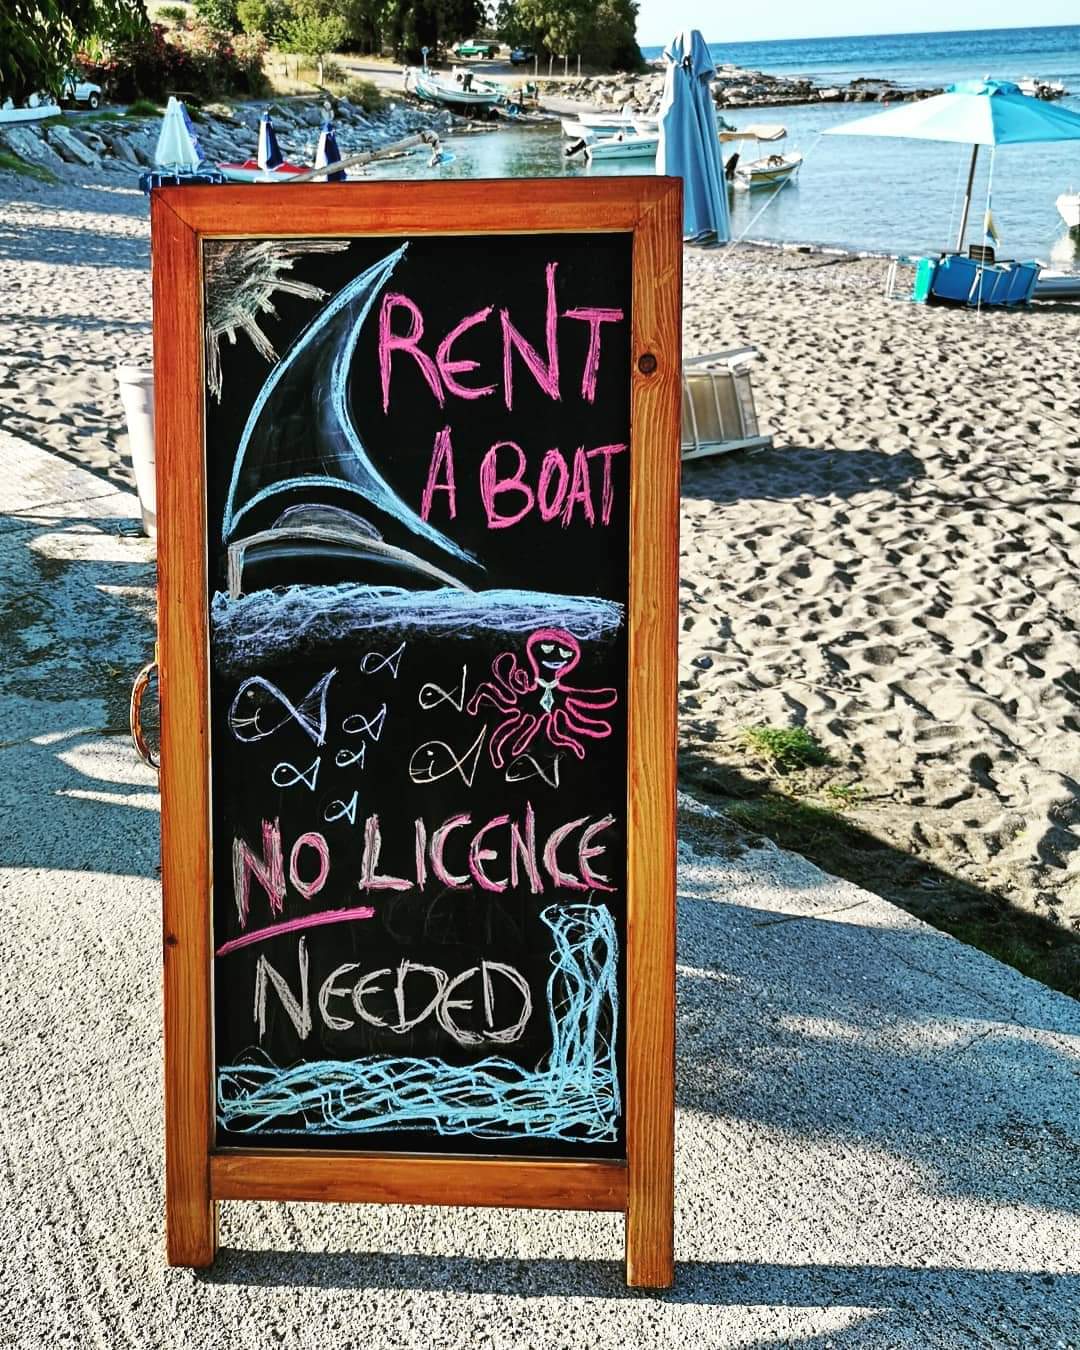 RENT
A BOAT
NO LICENCE
NEEDED